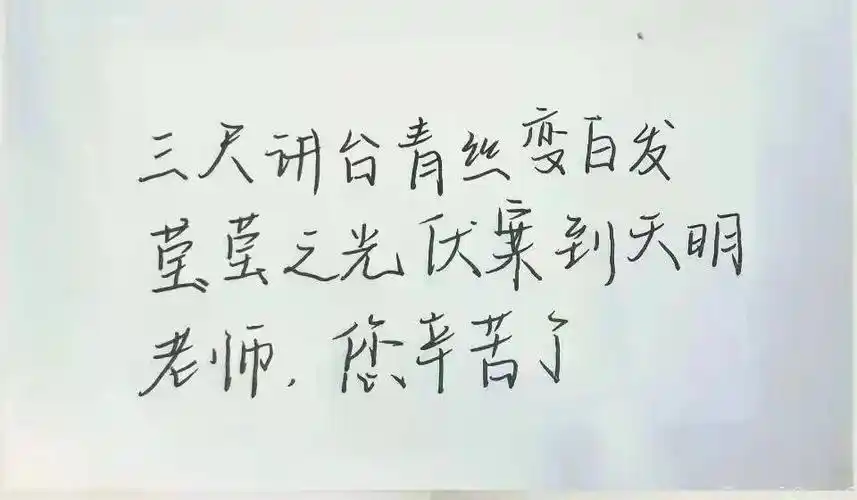 三尺讲台青丝变白发
莹莹之光伏案到天明
老师，您辛苦了